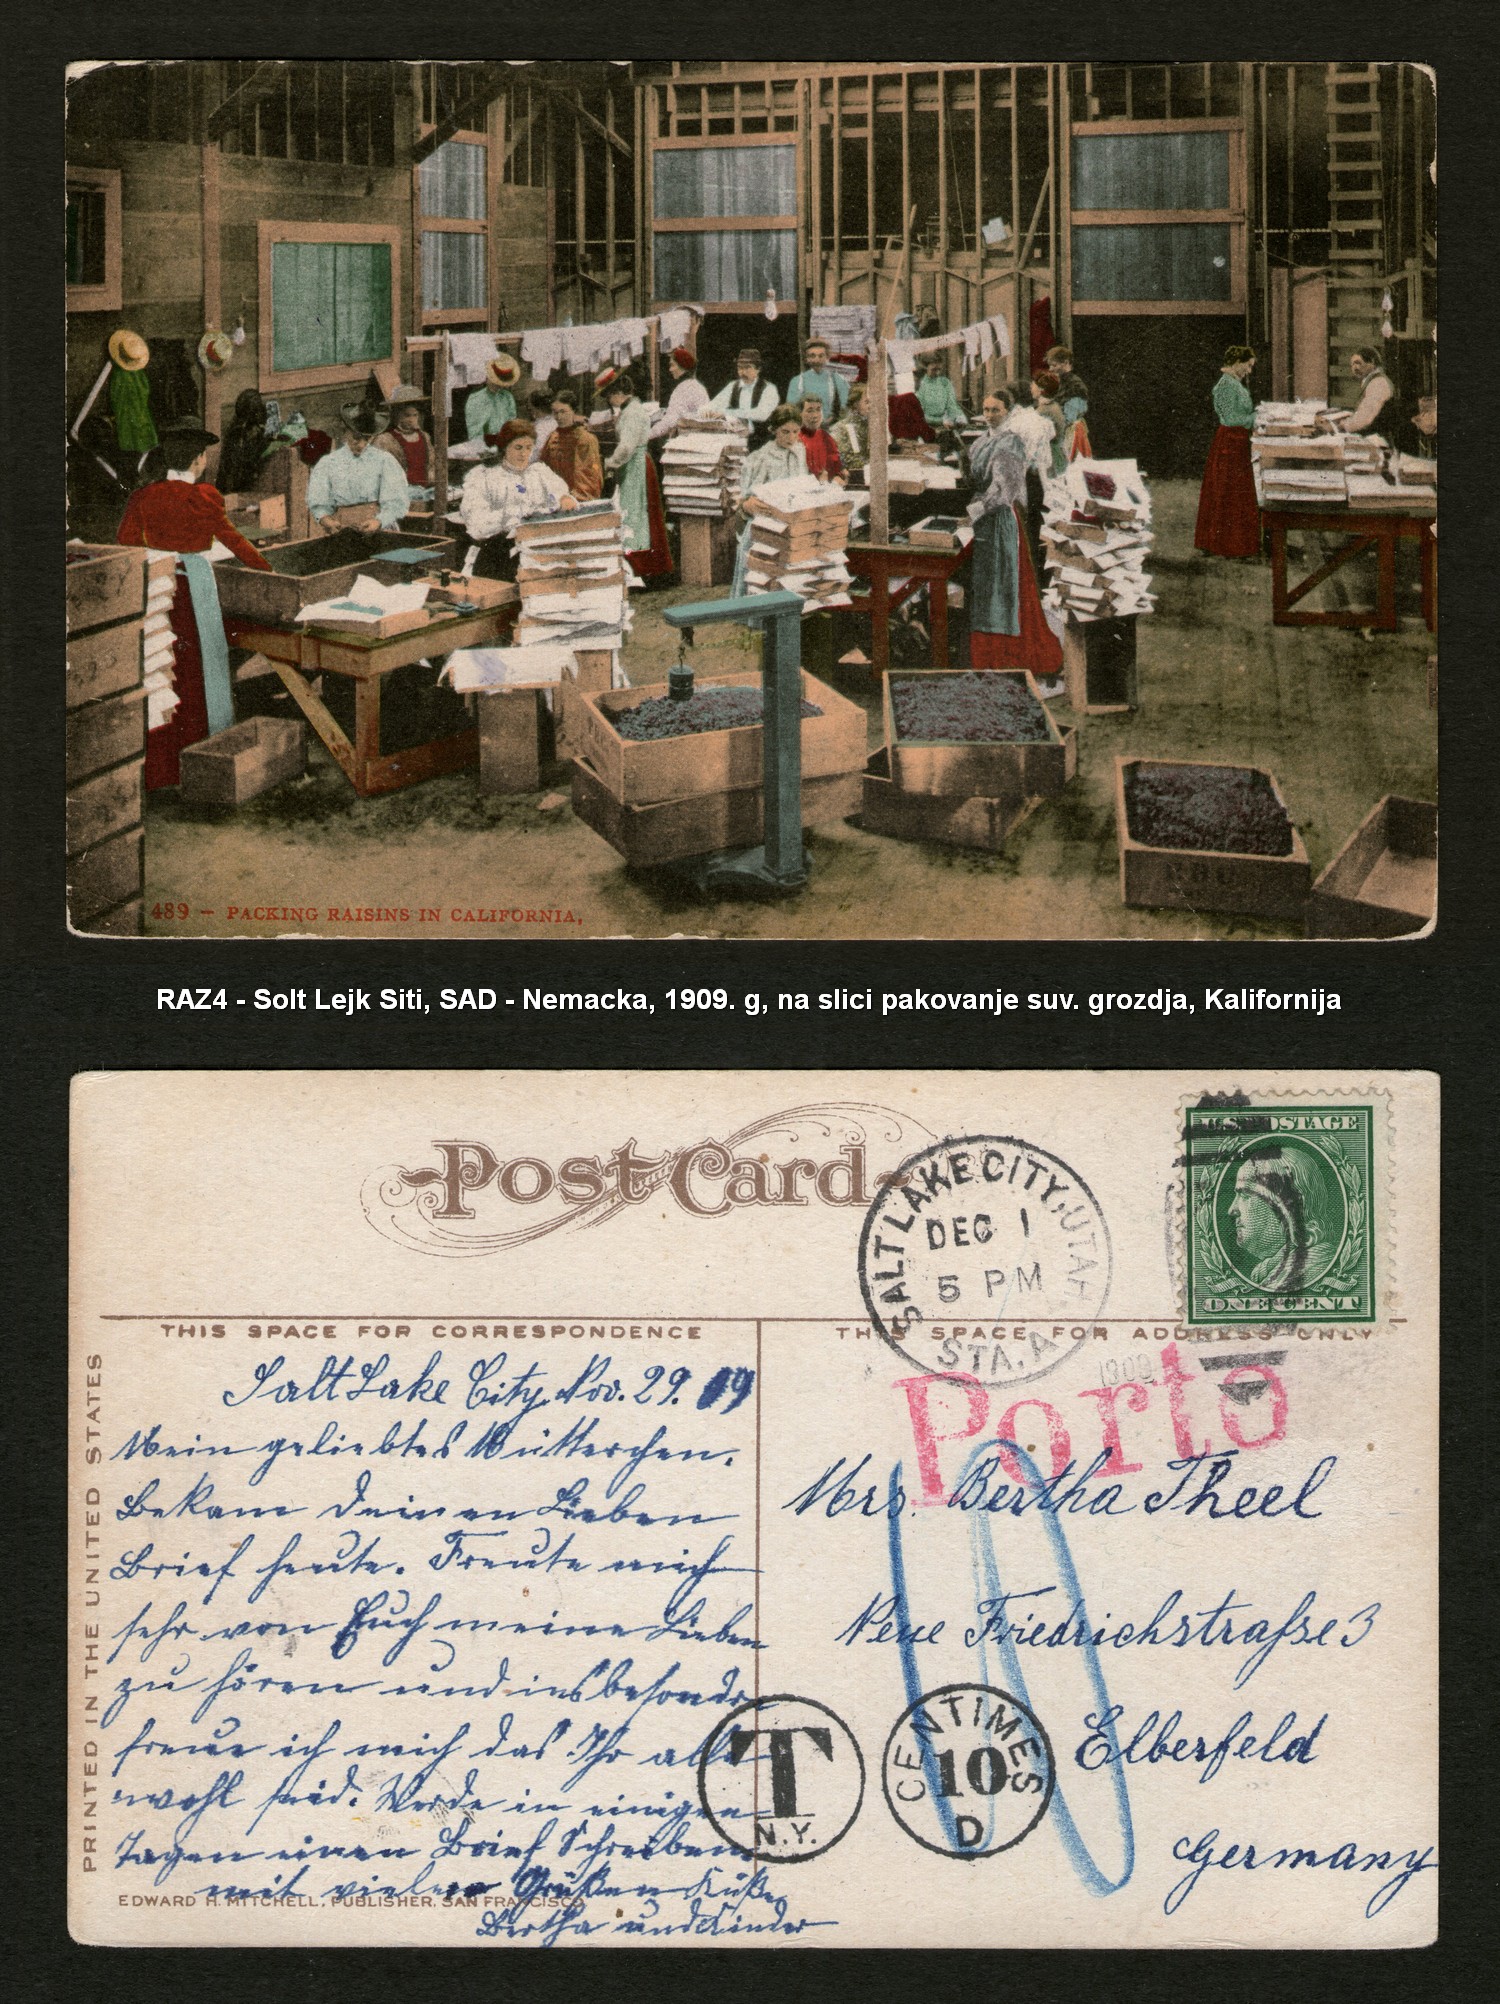 489 – PACKING RAISINS IN CALIFORNIA,
RAZ4 - Solt Lejk Siti, SAD - Nemacka, 1909. g, na slici pakovanje suv. grozdja, Kalifornija
Post Card
SALT LAKE CITY, UTAH
DEC 1
5 PM
STA. A
1909
U.S. POSTAGE
ONE CENT
THIS SPACE FOR CORRESPONDENCE
THIS SPACE FOR ADDRESS ONLY
PRINTED IN THE UNITED STATES
Salt Lake City, Nov. 29. 09
Mein geliebtes Mütterchen.
Bekam deinen Lieben
Brief heute. Freute mich
sehr von Euch meine Lieben
zu hören und insbesondre
freue ich mich das Ihr alle
wohl seid. Werde in einigen
Tagen einen Brief Schreiben
mit vielen Grüßen Küße
Bertha und Kinder
EDWARD H. MITCHELL, PUBLISHER, SAN FRANCISCO
Porto
Mrs. Bertha Theel
Neue Friedrichstraße 3
Elberfeld
Germany
10
T
N.Y.
CENTIMES
10
D